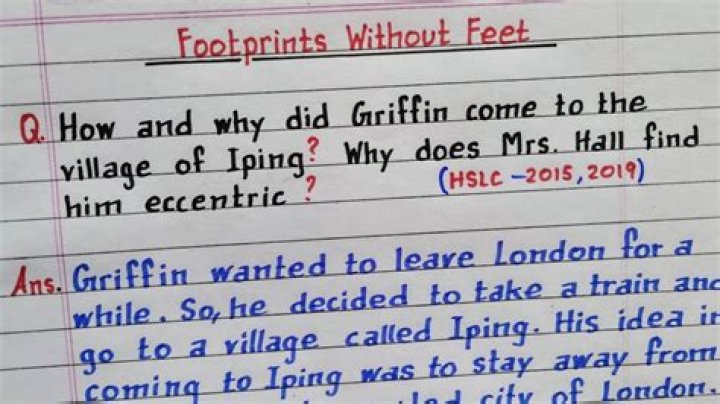 Footprints Without Feet
Q. How and why did Griffin come to the
village of Iping? Why does Mrs. Hall find
him eccentric ?
(HSLC -2015, 2019)
Ans. Griffin wanted to leave London for a
while. So, he decided to take a train and
go to a village called Iping. His idea in
coming to Iping was to stay away from
city of London.